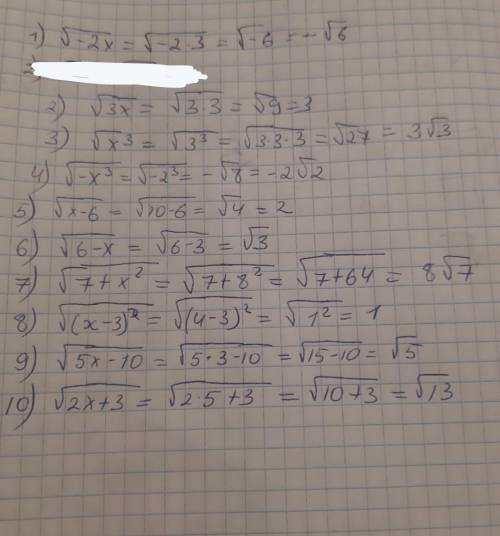 1) √-2x = √-2·3 = √-6 = -√6
2) √3x = √3·3 = √9 = 3
3) √x³ = √3³ = √3·3·3 = √27 = 3√3
4) √-x³ = √-2³ = -√8 = -2√2
5) √x-6 = √10-6 = √4 = 2
6) √6-x = √6-3 = √3
7) √7+x² = √7+8² = √7+64 = 8√7
8) √(x-3)² = √(4-3)² = √1² = 1
9) √5x-10 = √5·3-10 = √15-10 = √5
10) √2x+3 = √2·5+3 = √10+3 = √13